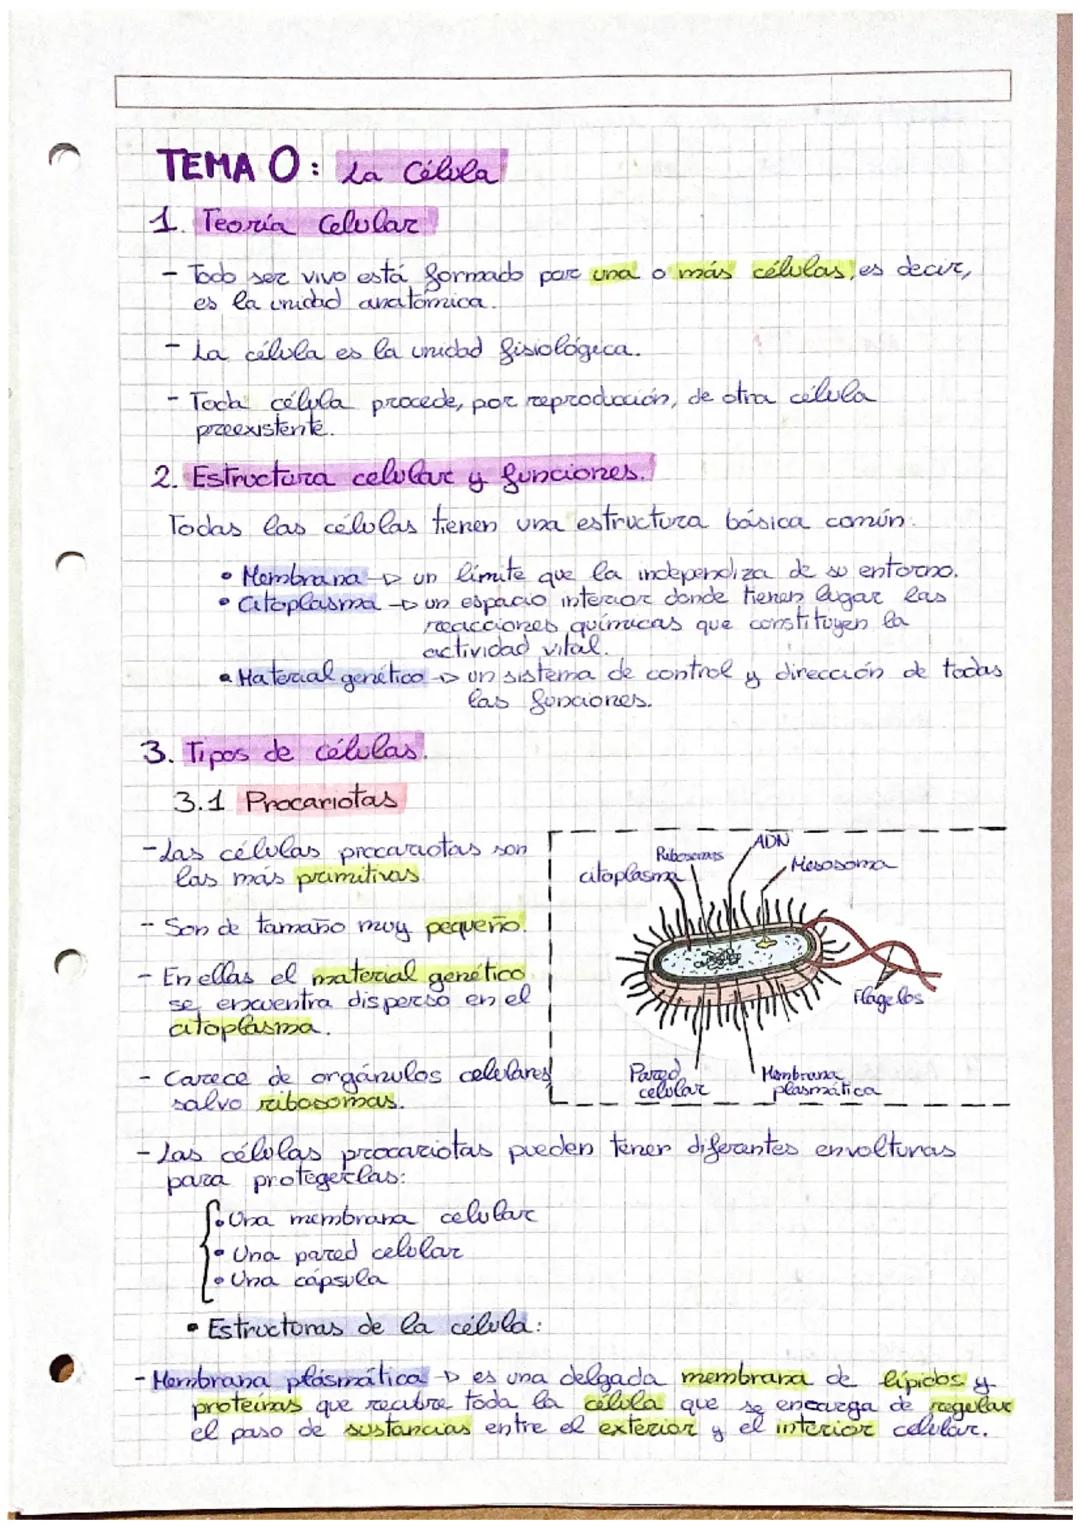 TEMA 0: La Célula
1. Teoría Celular
- Todo ser vivo está formado por una o más células, es decir,
es la unidad anatómica.
- La célula es la unidad fisiológica.
- Toda célula procede, por reproducción, de otra célula
preexistente.
2. Estructura celular y funciones.
Todas las células tienen una estructura básica común:
• Membrana → un límite que la independiza de su entorno.
• Citoplasma → un espacio interior donde tienen lugar las
reacciones químicas que constituyen la
actividad vital.
• Material genético → un sistema de control y dirección de todas
las funciones.
3. Tipos de células.
3.1 Procariotas
- Las células procariotas son
las más primitivas.
- Son de tamaño muy pequeño.
- En ellas el material genético
se encuentra disperso en el
citoplasma.
- Carece de orgánulos celulares
salvo ribosomas.
citoplasma
Ribosomas
ADN
Mesosoma
Flagelos
Pared
celular
Membrana
plasmática
- Las células procariotas pueden tener diferentes envolturas
para protegerlas:
• Una membrana celular
• Una pared celular
• Una cápsula
• Estructuras de la célula:
- Membrana plásmática → es una delgada membrana de lípidos y
proteínas que recubre toda la célula que se encarga de regular
el paso de sustancias entre el exterior y el interior celular.